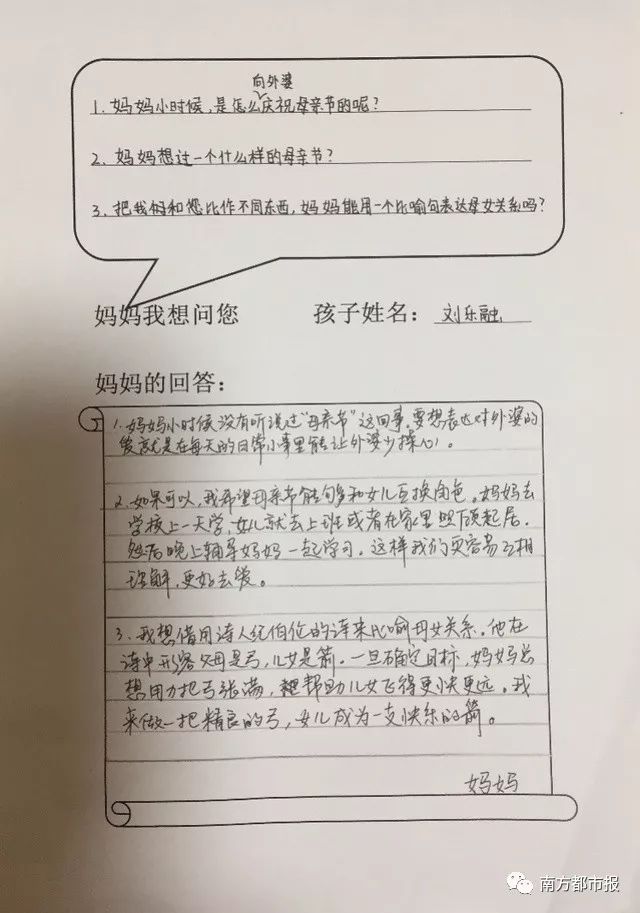 向外婆
1. 妈妈小时候,是怎么庆祝母亲节的呢?
2. 妈妈想过一个什么样的母亲节?
3. 把我妈和您比作不同东西,妈妈能用一个比喻句表达母女关系吗?
妈妈我想问您 孩子姓名: 刘乐融
妈妈的回答:
1. 妈妈小时候没有听说过“母亲节”这回事。要想表达对外婆的
爱意就是在每天的日常小事里能让外婆少操心。
2. 如果可以,我希望母亲节能够多和女儿互换角色。妈妈去
学校上一天学,女儿就去上班或者在家里照顾起居。
然后晚上辅导妈妈一起学习。这样我们更容易互相
理解,更好去爱。
3. 我想借用诗人纪伯伦的诗来比喻母女关系。他在
诗中形容父母是弓,儿女是箭。一旦确定目标,妈妈总
想用力把弓张满,帮助儿女飞得更快更远。我
来做一把精良的弓,女儿成为一支快乐的箭。
妈妈
南方都市报